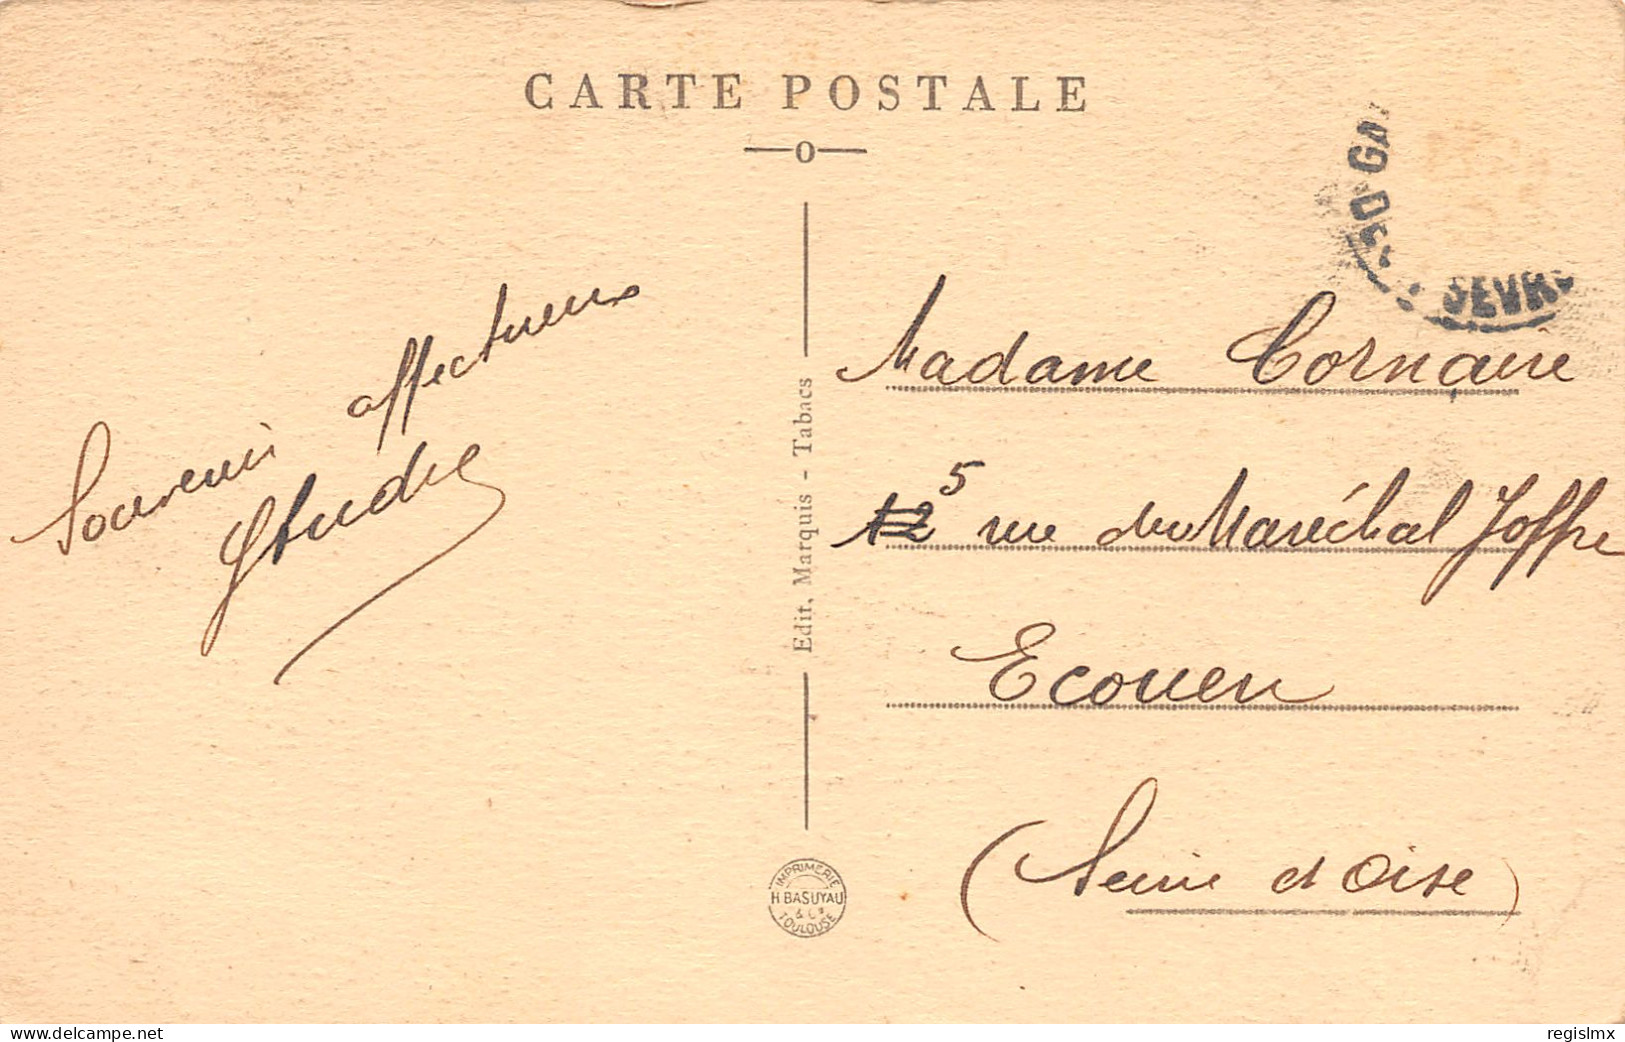 CARTE POSTALE
Souvenir affectueux
Edit. Marquis - Tabacs
IMPRIMERIE
H BASUYAU
& Cie
TOULOUSE
SEVR
Madame Cornaire
12 5 rue du Maréchal Joffre
Ecouen
(Seine et Oise)
delcampe.net
regislmx